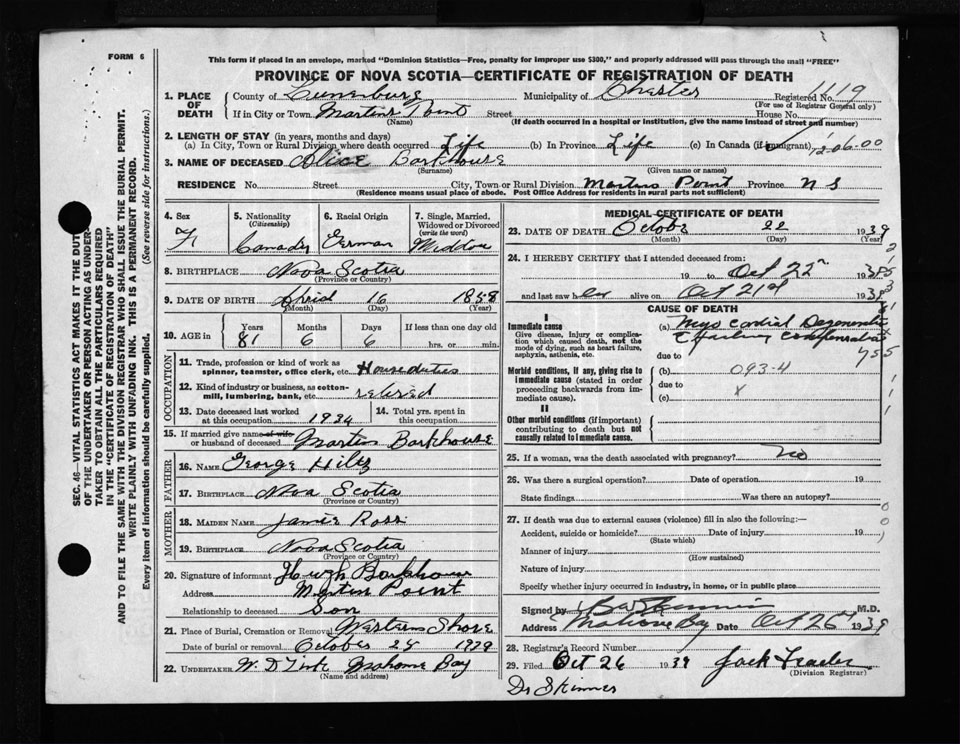 FORM 6
This form if placed in an envelope, marked "Dominion Statistics—Free, penalty for improper use $300," and properly addressed will pass through the mail "FREE"
PROVINCE OF NOVA SCOTIA—CERTIFICATE OF REGISTRATION OF DEATH
1. PLACE OF DEATH County of Lunenburg Municipality of Chester Registered No. 119
(For use of Registrar General only)
If in City or Town Martins Point Street House No.
(Name) (If death occurred in a hospital or institution, give the name instead of street and number)
2. LENGTH OF STAY (in years, months and days)
(a) In City, Town or Rural Division where death occurred Life (b) In Province Life (c) In Canada (if immigrant) 1206.00
3. NAME OF DECEASED Alice Barkhouse
(Surname) (Given name or names)
RESIDENCE No. Street City, Town or Rural Division Martins Point Province N S
(Residence means usual place of abode. Post Office Address for residents in rural parts not sufficient)
4. Sex F
5. Nationality (Citizenship) Canada
6. Racial Origin German
7. Single, Married, Widowed or Divorced (write the word) Widdow
8. BIRTHPLACE Nova Scotia
(Province or Country)
9. DATE OF BIRTH April 16 1858
(Month) (Day) (Year)
10. AGE in Years Months Days If less than one day old
81 6 6 hrs. or min.
OCCUPATION
11. Trade, profession or kind of work as spinner, teamster, office clerk, etc. House duties
12. Kind of industry or business, as cotton-mill, lumbering, bank, etc. retired
13. Date deceased last worked at this occupation 1934
14. Total yrs. spent in this occupation
15. If married give name of wife or husband of deceased Martin Barkhouse
FATHER
16. NAME George Hiltz
17. BIRTHPLACE Nova Scotia
(Province or Country)
MOTHER
18. MAIDEN NAME Janie Ross
19. BIRTHPLACE Nova Scotia
(Province or Country)
20. Signature of informant Hugh Barkhouse
Address Martin Point
Relationship to deceased Son
21. Place of Burial, Cremation or Removal Western Shore
Date of burial or removal October 24 1939
22. UNDERTAKER W. D. Mahone Bay
(Name and address)
MEDICAL CERTIFICATE OF DEATH
23. DATE OF DEATH October 22 1939
(Month) (Day) (Year)
24. I HEREBY CERTIFY that I attended deceased from:
19 to Oct 22nd 1939
and last saw her alive on Oct 21st 1939
CAUSE OF DEATH
I
Immediate cause
Give disease, injury or complication which caused death, not the mode of dying, such as heart failure, asphyxia, asthenia, etc.
(a) Myocardial Degeneration
c failing compensation
due to
Morbid conditions, if any, giving rise to immediate cause (stated in order proceeding backwards from immediate cause).
(b) 093-4
due to
(c) x
II
Other morbid conditions (if important) contributing to death but not causally related to immediate cause.
25. If a woman, was the death associated with pregnancy? no
26. Was there a surgical operation? Date of operation 19
State findings Was there an autopsy?
27. If death was due to external causes (violence) fill in also the following:—
Accident, suicide or homicide? Date of injury 19
(State which)
Manner of injury
(How sustained)
Nature of injury
Specify whether injury occurred in industry, in home, or in public place
Signed by Skinner M.D.
Address Mahone Bay Date Oct 26th 1939
28. Registrar's Record Number
29. Filed Oct 26 1939 Jack
(Division Registrar)
Dr Skinner
SEC. 46—VITAL STATISTICS ACT MAKES IT THE DUTY
OF THE UNDERTAKER OR PERSON ACTING AS UNDER-
TAKER TO OBTAIN ALL THE PARTICULARS REQUIRED
IN THE "CERTIFICATE OF REGISTRATION OF DEATH"
AND TO FILE THE SAME WITH THE DIVISION REGISTRAR WHO SHALL ISSUE THE BURIAL PERMIT.
WRITE PLAINLY WITH UNFADING INK. THIS IS A PERMANENT RECORD.
Every item of information should be carefully supplied. (See reverse side for instructions.)